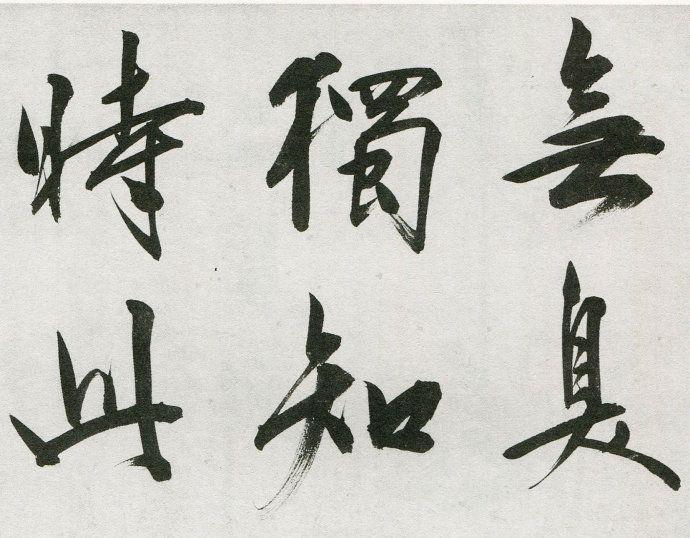 無臭
獨知
時此